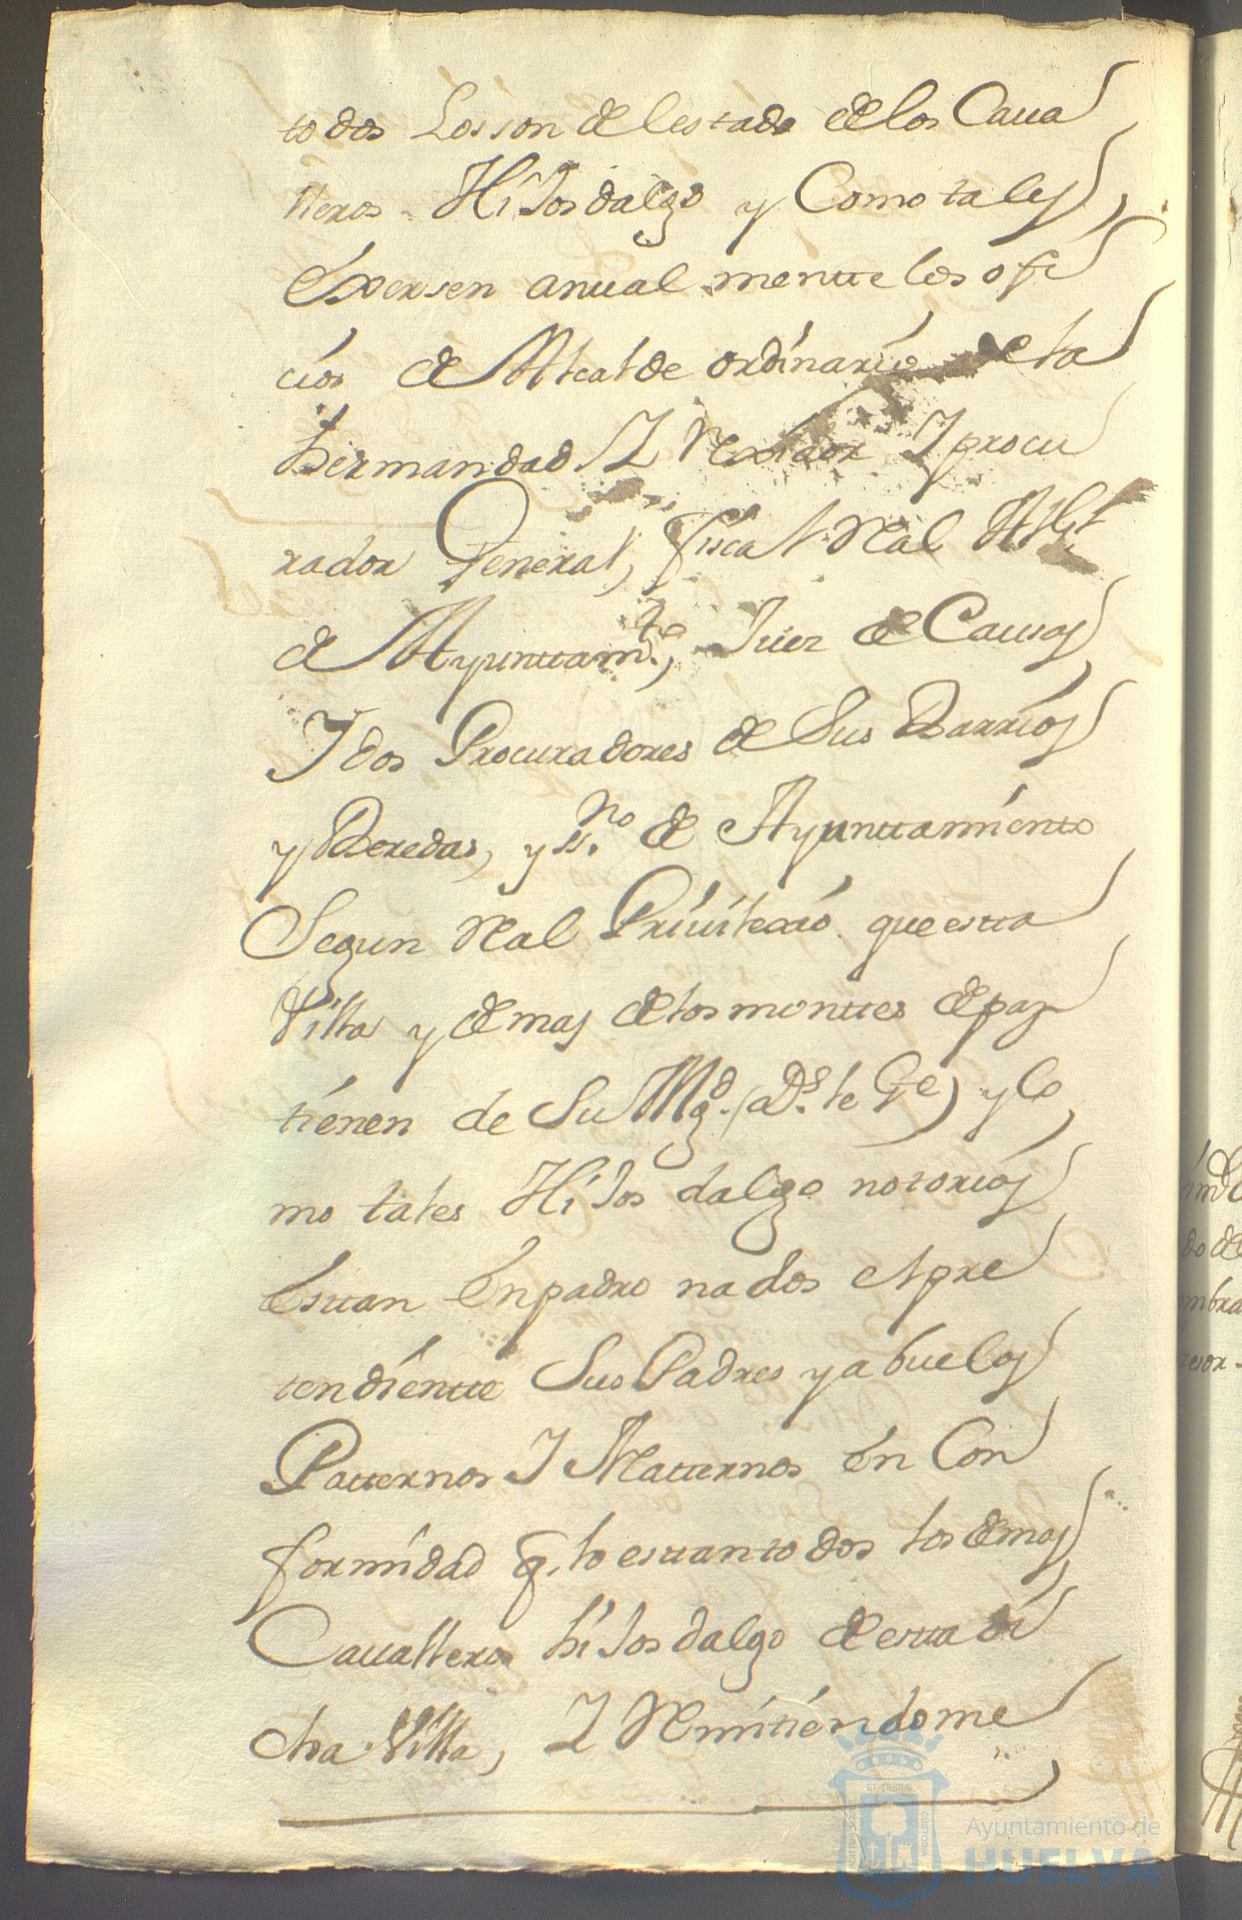 todos Los son del estado de los Caua
lleros Hijosdalgo y Como tales
Exersen anual mentte los ofi
cios de Alcalde ordinario de la
hermandad, I Rexidor I procu
rador General, fiscal Real Alg.l
de Ayunttam.to, Juez de Causas
I dos Procuradores de Sus Barrios
y Beredas, y ss.no de Ayunttamiento
Segun Real Priuilexio que estta
Villa y demas de los montes de paz
tienen de Su Mg.d (a D.s le G.e) y co
mo tales Hijos dalgo notorios
Esttan Enpadronados el pre
tendientte Sus Padres y abuelos
Patternos I Matternos en Con
formidad q. lo esttan todos los demas
Caualleros hijos dalgo de estta di
cha Villa, I Remitiendome
indi
do de
mbra
resor
Ayuntamiento de
HUELVA